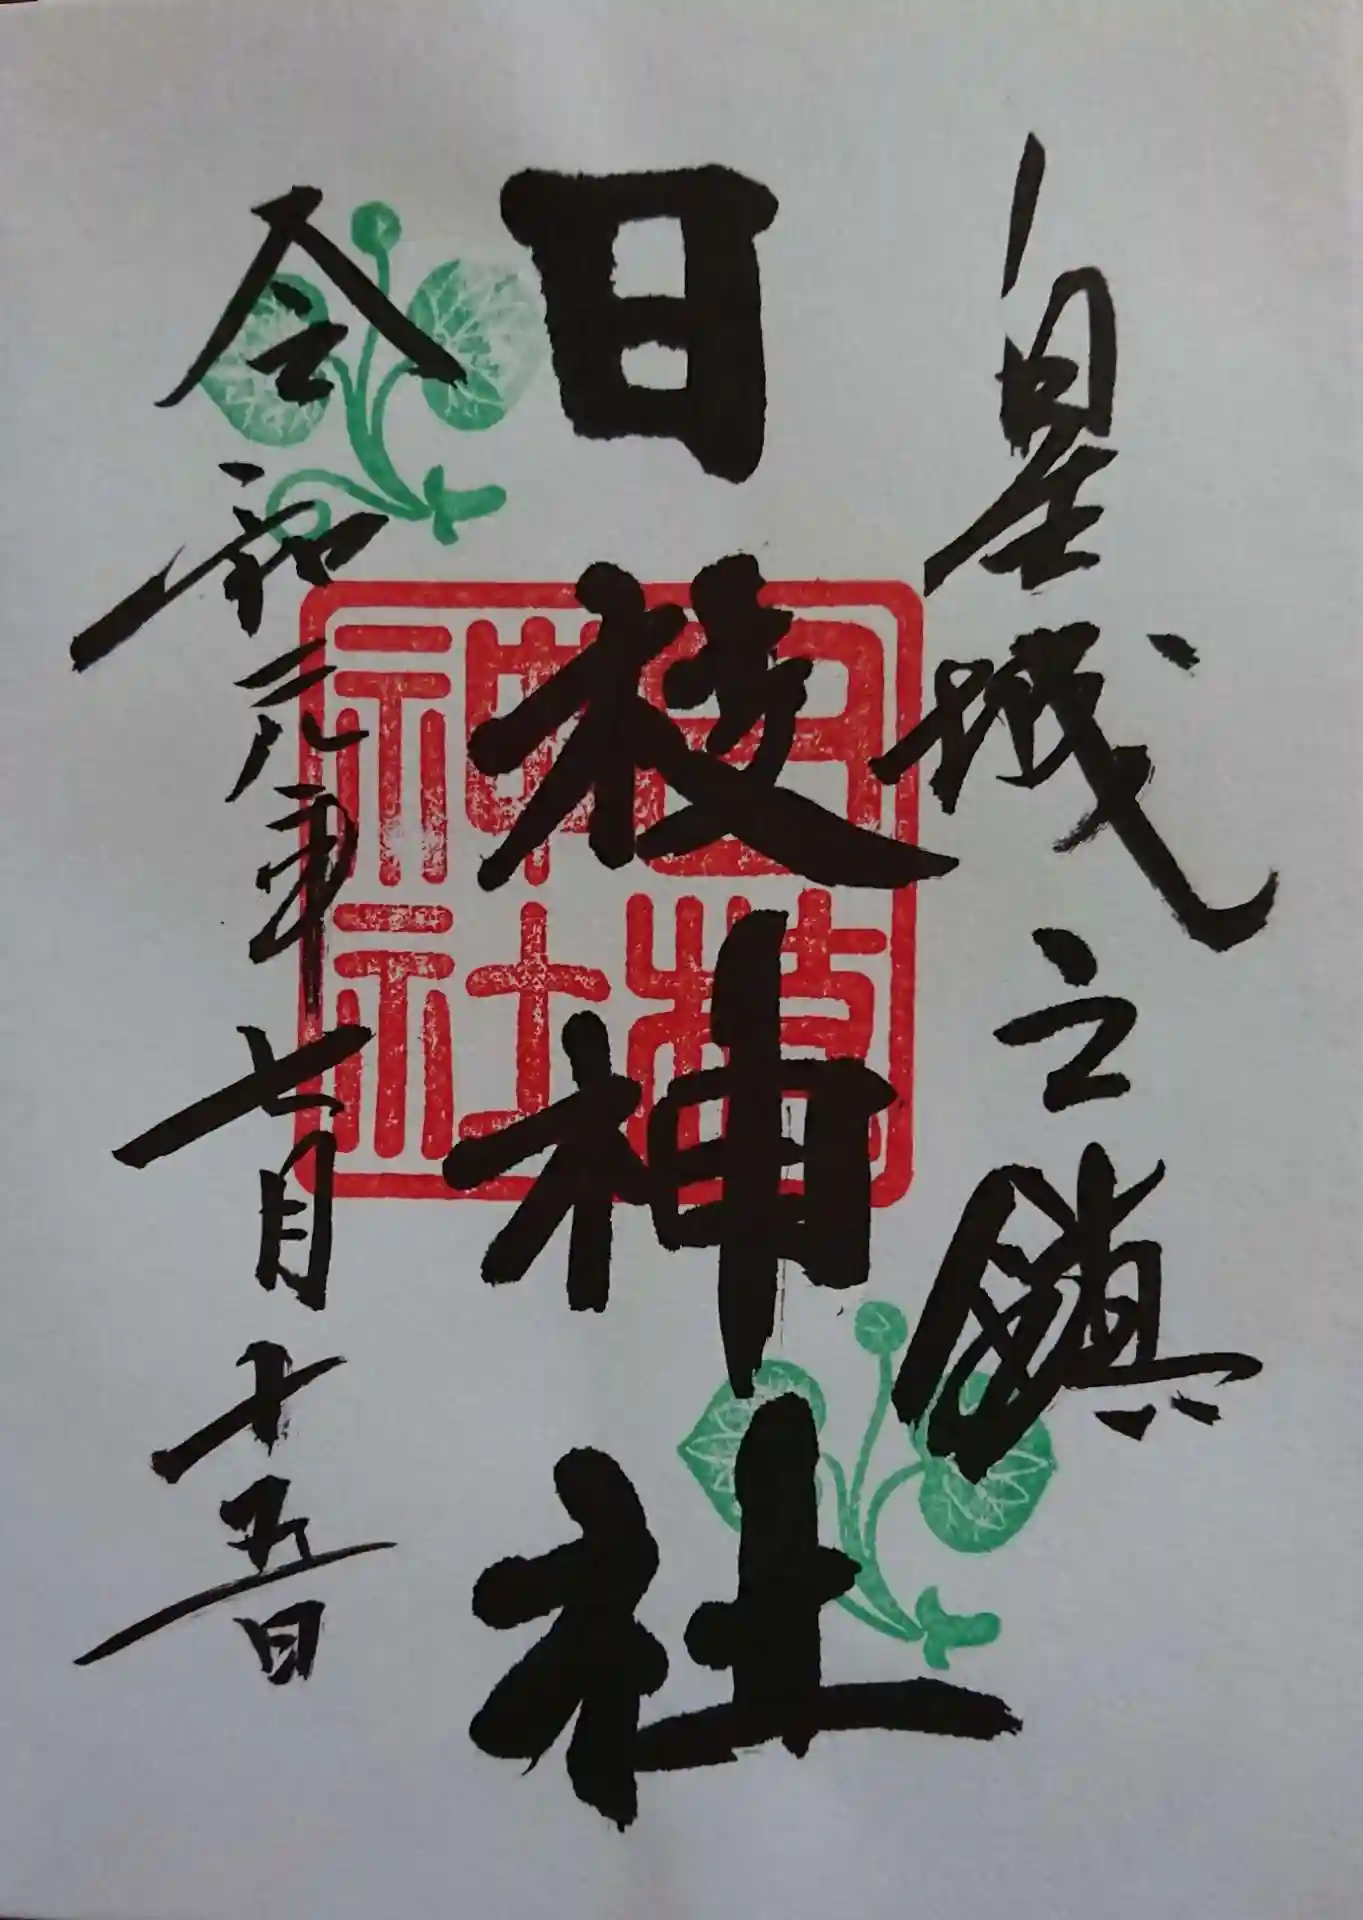 皇城之鎮
日枝神社
令和元年七月十五日
日枝
神社